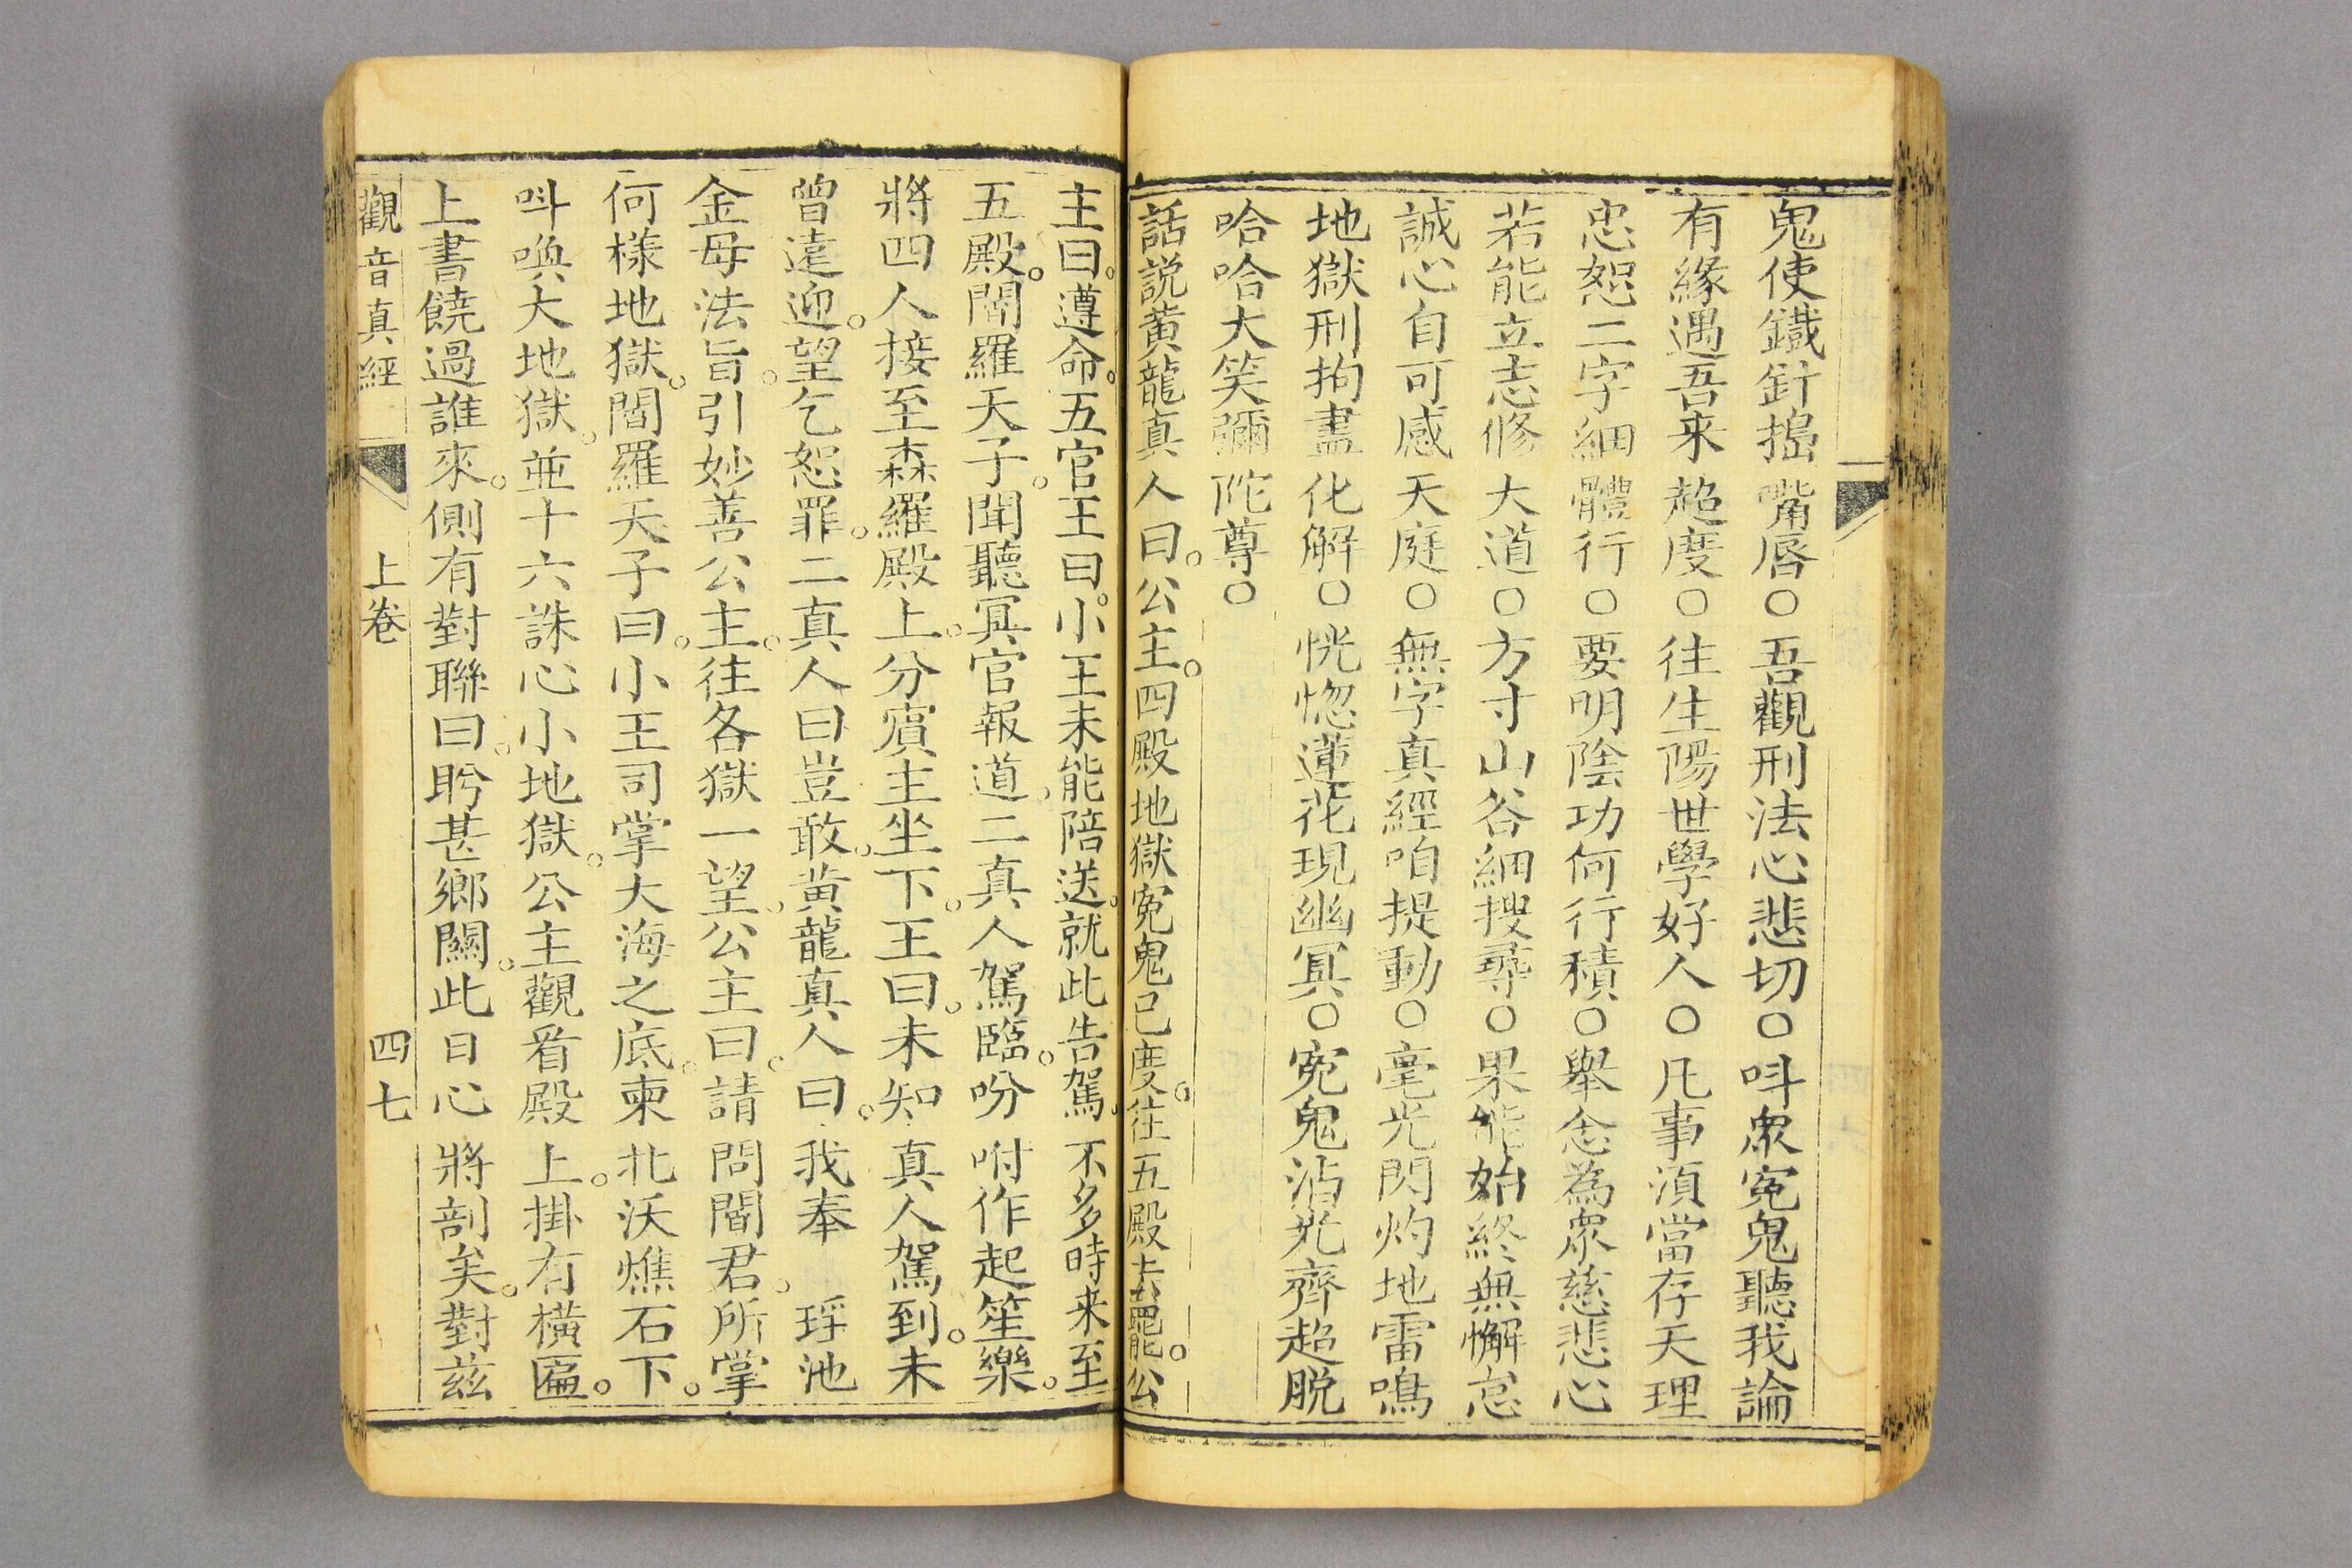 鬼使鐵針搗嘴唇○吾觀刑法心悲切○呌衆寃鬼聽我論
有緣遇吾来超度○往生陽世學好人○凡事須當存天理
忠恕二字細體行○要明陰功何行積○舉念為衆慈悲心
若能立志修大道○方寸山谷細搜尋○果能始終無懈怠
誠心自可感天庭○無字真經咱提動○毫光閃灼地雷鳴
地獄刑拘盡化解○恍惚蓮花現幽冥○寃鬼沾光齊超脱
哈哈大笑彌陀尊○
話説黄龍真人曰。公主。四殿地獄寃鬼已度。往五殿去罷。公
主曰。遵命。五官王曰。小王未能陪送。就此告駕。不多時来至
五殿。閻羅天子。聞聽冥官報道。二真人駕臨。吩咐作起笙樂。
將四人接至森羅殿上。分賓主坐下。王曰。未知真人駕到。未
曾遠迎。望乞恕罪。二真人曰豈敢。黄龍真人曰。我奉 瑤池
金母法旨。引妙善公主。往各獄一望。公主曰。請問閻君。所掌
何樣地獄。閻羅天子曰。小王司掌大海之底。東北沃燋石下。
呌喚大地獄。並十六誅心小地獄。公主觀看殿上。掛有橫匾。
上書饒過誰來。側有對聯曰。盻甚鄉關。此日心將剖矣。對兹
觀音真經 上卷 四七